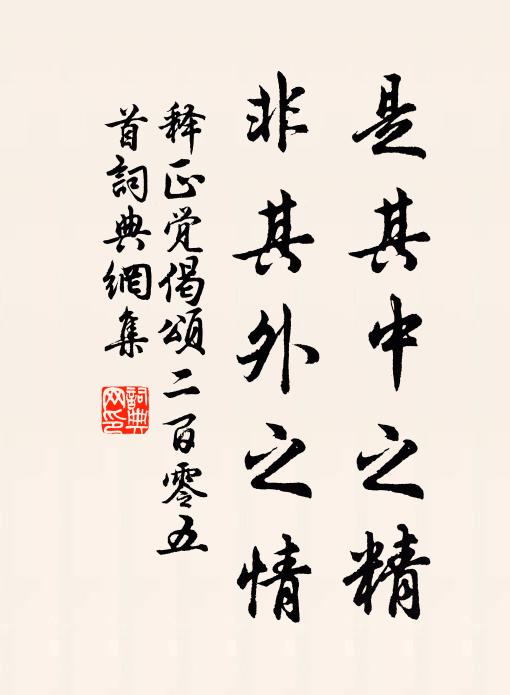 是其中之精
非其外之情
释正觉偈颂二百零五
首詞典網集
詞典
网印